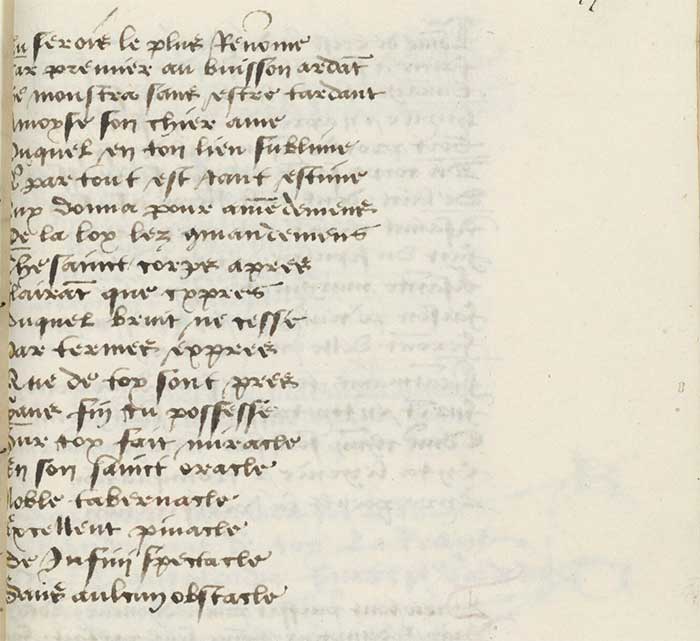 Tu serois le plus Renõme
Car premier au buisson ardãt
Se monstra sans estre tardant
A moyse son chier ame
Duquel en ton lieu sublime
partout est tant estime
Luy donna pour amẽdemens
De la loy lez 9mandemens
saincte corps apres
Clairãt que cypres
Duquel bruit ne cesse
Par termes expres
Que de toy sont pres
Sans fin tu possesse
Sur toy fait miracle
En son sainct oracle
Noble tabernacle
Excellent pinacle
De Infini spectacle
Sans aulcun obstacle